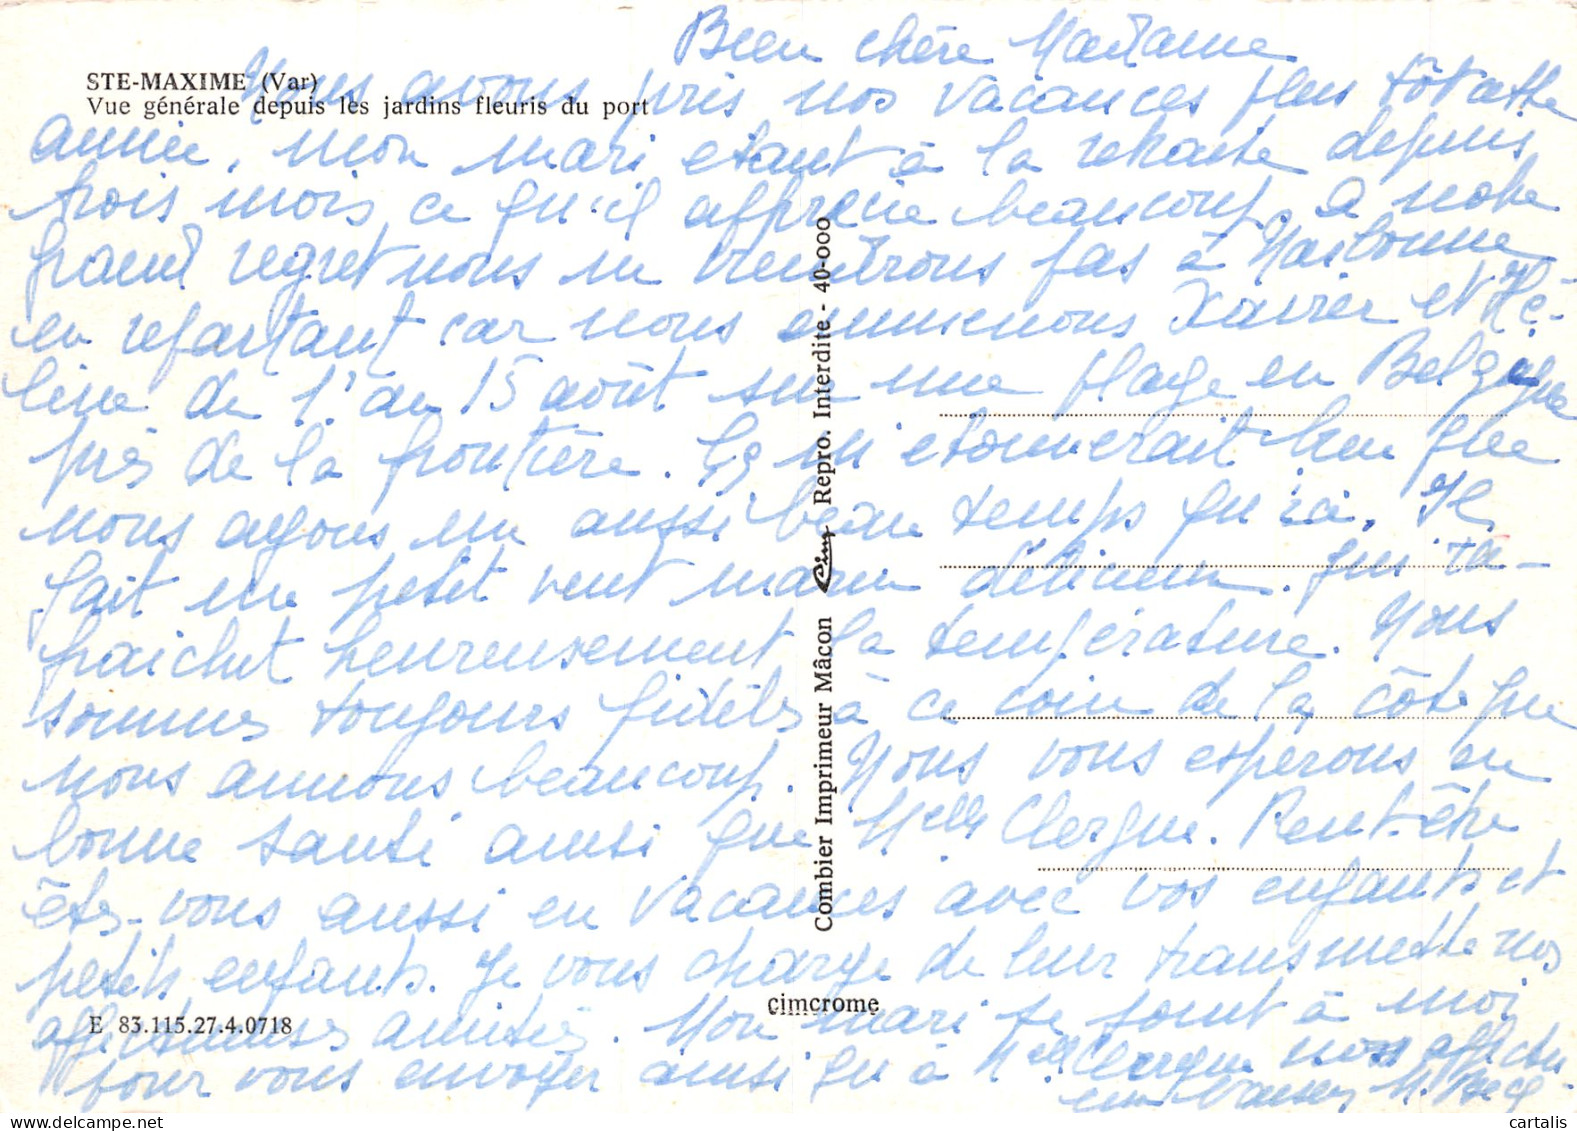 STE-MAXIME (Var)
Vue générale depuis les jardins fleuris du port
Bien chère Madame
Nous avons pris nos vacances plus tôt cette
année, mon mari etant à la retraite depuis
trois mois, ce qu'il apprécie beaucoup, a notre
grand regret nous ne viendrons pas à Narbonne
en repartant car nous emmenons Xavier et Hé-
lène du 1' au 15 août sur une plage en Belgique
près de la frontière. Ça m'etonnerait bien que
nous ayons un aussi beau temps qu'ici, Il
fait un petit vent marin délicieux qui ra-
fraichit heureusement la température. Nous
sommes toujours fidèles à ce coin de la côte que
nous aimons beaucoup. Nous vous esperons en
bonne santé ainsi que Melle Clergue. Peut-être
êtes-vous aussi en vacances avec vos enfants et
petits enfants. Je vous charge de leur transmettre nos
affectueuses amitiés. Mon mari se joint à moi
pour vous envoyer ainsi qu'à Melle Clergue nos affectu
eux baisers M.
Combier Imprimeur Mâcon Cim Repro. Interdite - 40-000
cimcrome
E 83.115.27.4.0718
cartalis